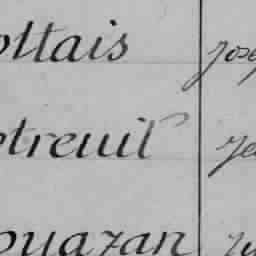 ottais Jose
otreuil Je
ouazan